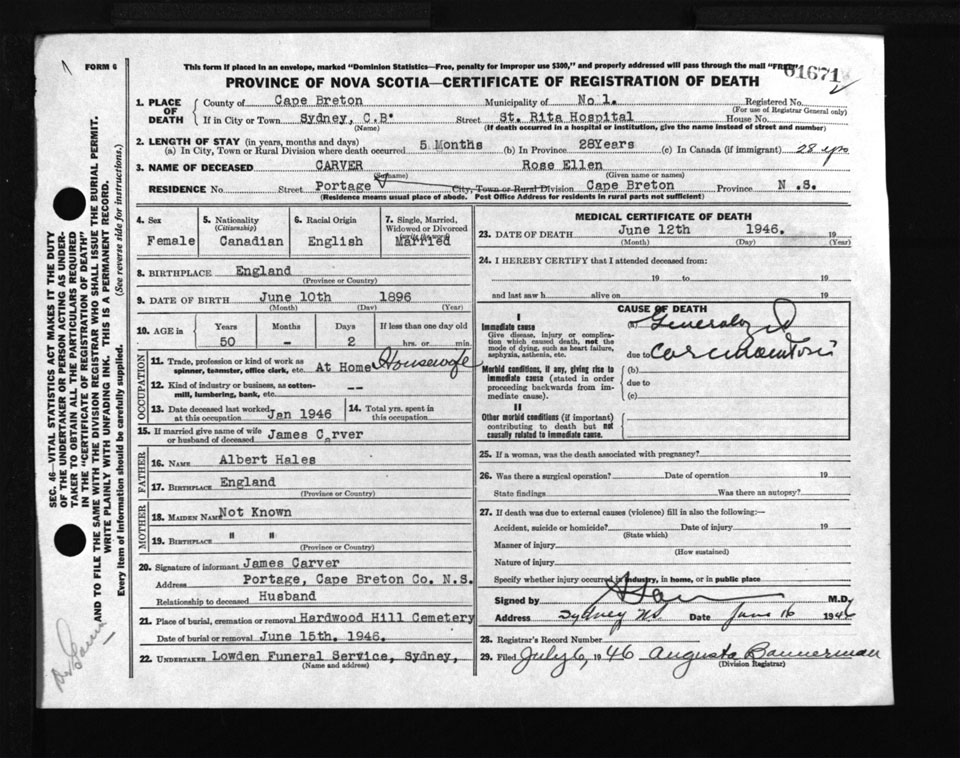 FORM 6
This form if placed in an envelope, marked "Dominion Statistics—Free, penalty for improper use $300," and properly addressed will pass through the mail "FREE"
61671
PROVINCE OF NOVA SCOTIA—CERTIFICATE OF REGISTRATION OF DEATH
1. PLACE OF DEATH
County of Cape Breton Municipality of No 1. Registered No.
(For use of Registrar General only)
If in City or Town Sydney, C.B. Street St. Rita Hospital House No.
(Name) (If death occurred in a hospital or institution, give the name instead of street and number)
2. LENGTH OF STAY (in years, months and days)
(a) In City, Town or Rural Division where death occurred 5 Months (b) In Province 28Years (c) In Canada (if immigrant) 28 yrs
3. NAME OF DECEASED CARVER Rose Ellen
(Surname) (Given name or names)
RESIDENCE No. Street Portage City, Town or Rural Division Cape Breton Province N.S.
(Residence means usual place of abode. Post Office Address for residents in rural parts not sufficient)
4. Sex
Female
5. Nationality
(Citizenship)
Canadian
6. Racial Origin
English
7. Single, Married, Widowed or Divorced
(write the word)
Married
8. BIRTHPLACE England
(Province or Country)
9. DATE OF BIRTH June 10th 1896
(Month) (Day) (Year)
10. AGE in
Years Months Days If less than one day old
50 - 2 hrs. or min.
OCCUPATION
11. Trade, profession or kind of work as spinner, teamster, office clerk, etc. At Home Housewife
12. Kind of industry or business, as cotton-mill, lumbering, bank, etc. --
13. Date deceased last worked at this occupation Jan 1946
14. Total yrs. spent in this occupation
15. If married give name of wife or husband of deceased James Carver
FATHER
16. NAME Albert Hales
17. BIRTHPLACE England
(Province or Country)
MOTHER
18. MAIDEN NAME Not Known
19. BIRTHPLACE " "
(Province or Country)
20. Signature of informant James Carver
Address Portage, Cape Breton Co. N.S.
Relationship to deceased Husband
21. Place of burial, cremation or removal Hardwood Hill Cemetery
Date of burial or removal June 15th. 1946.
22. UNDERTAKER Lowden Funeral Service, Sydney,
(Name and address)
MEDICAL CERTIFICATE OF DEATH
23. DATE OF DEATH June 12th 1946. 19
(Month) (Day) (Year)
24. I HEREBY CERTIFY that I attended deceased from:
19 to 19
and last saw h alive on 19
CAUSE OF DEATH
I
Immediate cause
Give disease, injury or complication which caused death, not the mode of dying, such as heart failure, asphyxia, asthenia, etc.
(a) Generalized
due to carcinomatosis
Morbid conditions, if any, giving rise to immediate cause (stated in order proceeding backwards from immediate cause).
(b)
due to
(c)
II
Other morbid conditions (if important) contributing to death but not causally related to immediate cause.
25. If a woman, was the death associated with pregnancy?
26. Was there a surgical operation? Date of operation 19
State findings Was there an autopsy?
27. If death was due to external causes (violence) fill in also the following:—
Accident, suicide or homicide? Date of injury 19
(State which)
Manner of injury
(How sustained)
Nature of injury
Specify whether injury occurred in industry, in home, or in public place
Signed by M.D.
Address Sydney NS Date June 16 1946
28. Registrar's Record Number
29. Filed July 6, 1946 Augusta Bannerman
(Division Registrar)
SEC. 46—VITAL STATISTICS ACT MAKES IT THE DUTY
OF THE UNDERTAKER OR PERSON ACTING AS UNDER-
TAKER TO OBTAIN ALL THE PARTICULARS REQUIRED
IN THE "CERTIFICATE OF REGISTRATION OF DEATH"
AND TO FILE THE SAME WITH THE DIVISION REGISTRAR WHO SHALL ISSUE THE BURIAL PERMIT.
WRITE PLAINLY WITH UNFADING INK. THIS IS A PERMANENT RECORD.
Every item of information should be carefully supplied. (See reverse side for instructions.)